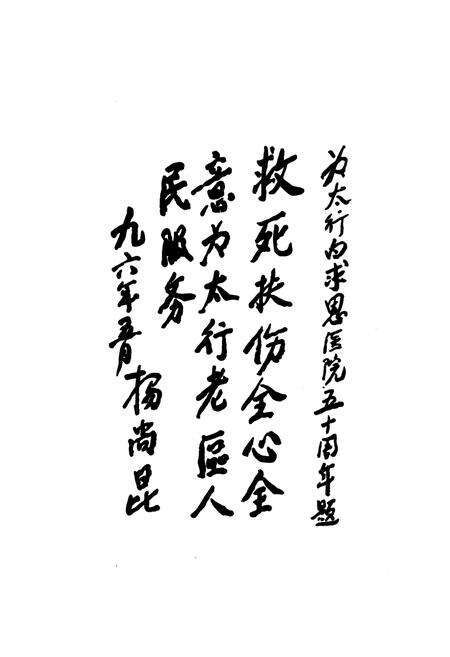 为太行白求恩医院五十周年题
救死扶伤全心全
意为太行老區人
民服务
九六年五月 杨尚昆